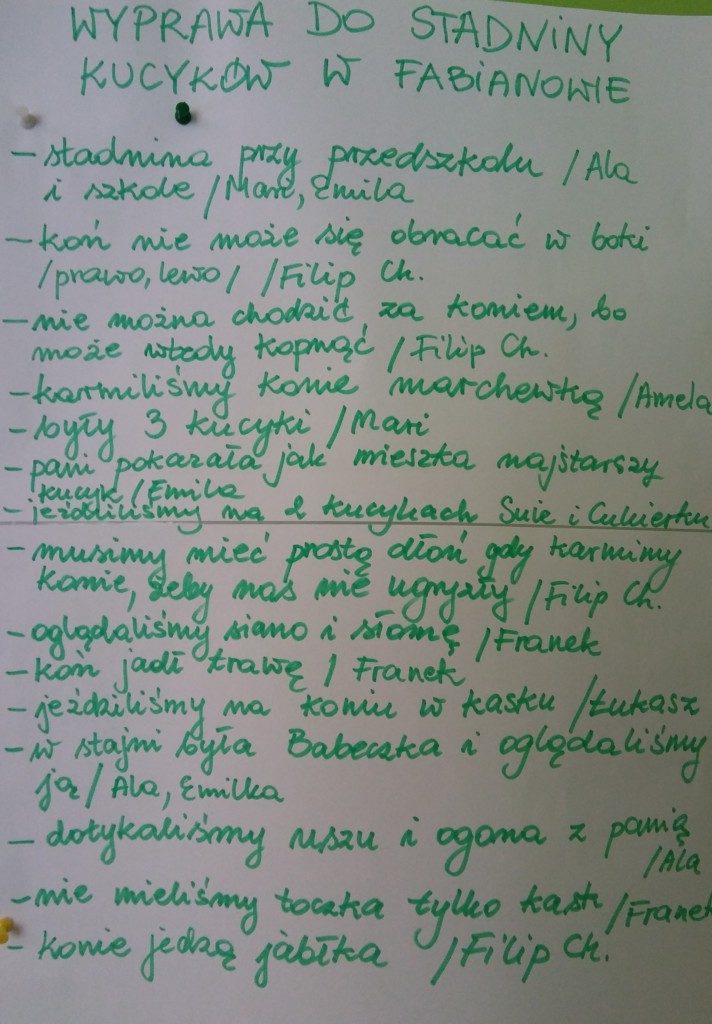 WYPRAWA DO STADNINY
KUCYKÓW W FABIANOWIE
- stadnina przy przedszkolu / Ala
i szkole / Mari, Emila
- koń nie może się obracać w boki
/prawo, lewo/ /Filip Ch.
- nie można chodzić za koniem, bo
może wtedy kopnąć / Filip Ch.
- karmiliśmy konie marchewką / Amela
- były 3 kucyki / Mari
- pani pokazała jak mieszka najstarszy
kucyk / Emila
- jeździliśmy na 2 kucykach Suie i Cukierku
- musimy mieć prostą dłoń gdy karmimy
konie, żeby nas nie ugryzły / Filip Ch.
- oglądaliśmy siano i słomę / Franek
- koń jadł trawę / Franek
- jeździliśmy na koniu w kasku / Łukasz
- w stajni była Babeczka i oglądaliśmy
ją / Ala, Emilka
- dotykaliśmy uszu i ogona z panią
/Ala
- nie mieliśmy toczka tylko kask / Franek
- konie jedzą jabłka / Filip Ch.